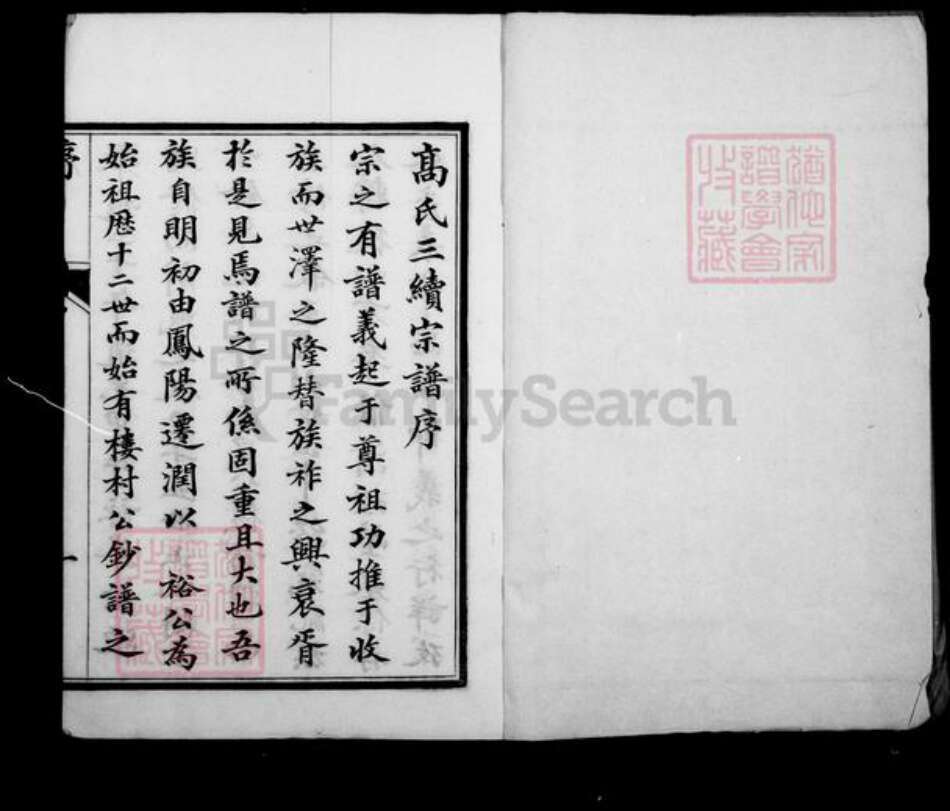 高氏三續宗譜序
宗之有譜義起于尊祖功推于收
族而世澤之隆替族祚之興衰胥
於是見焉譜之所係固重且大也吾
族自明初由鳳陽遷潤以 裕公為
始祖歷十二世而始有棲村公鈔譜之
序
一
猶他家
譜學會
收藏
FamilySearch